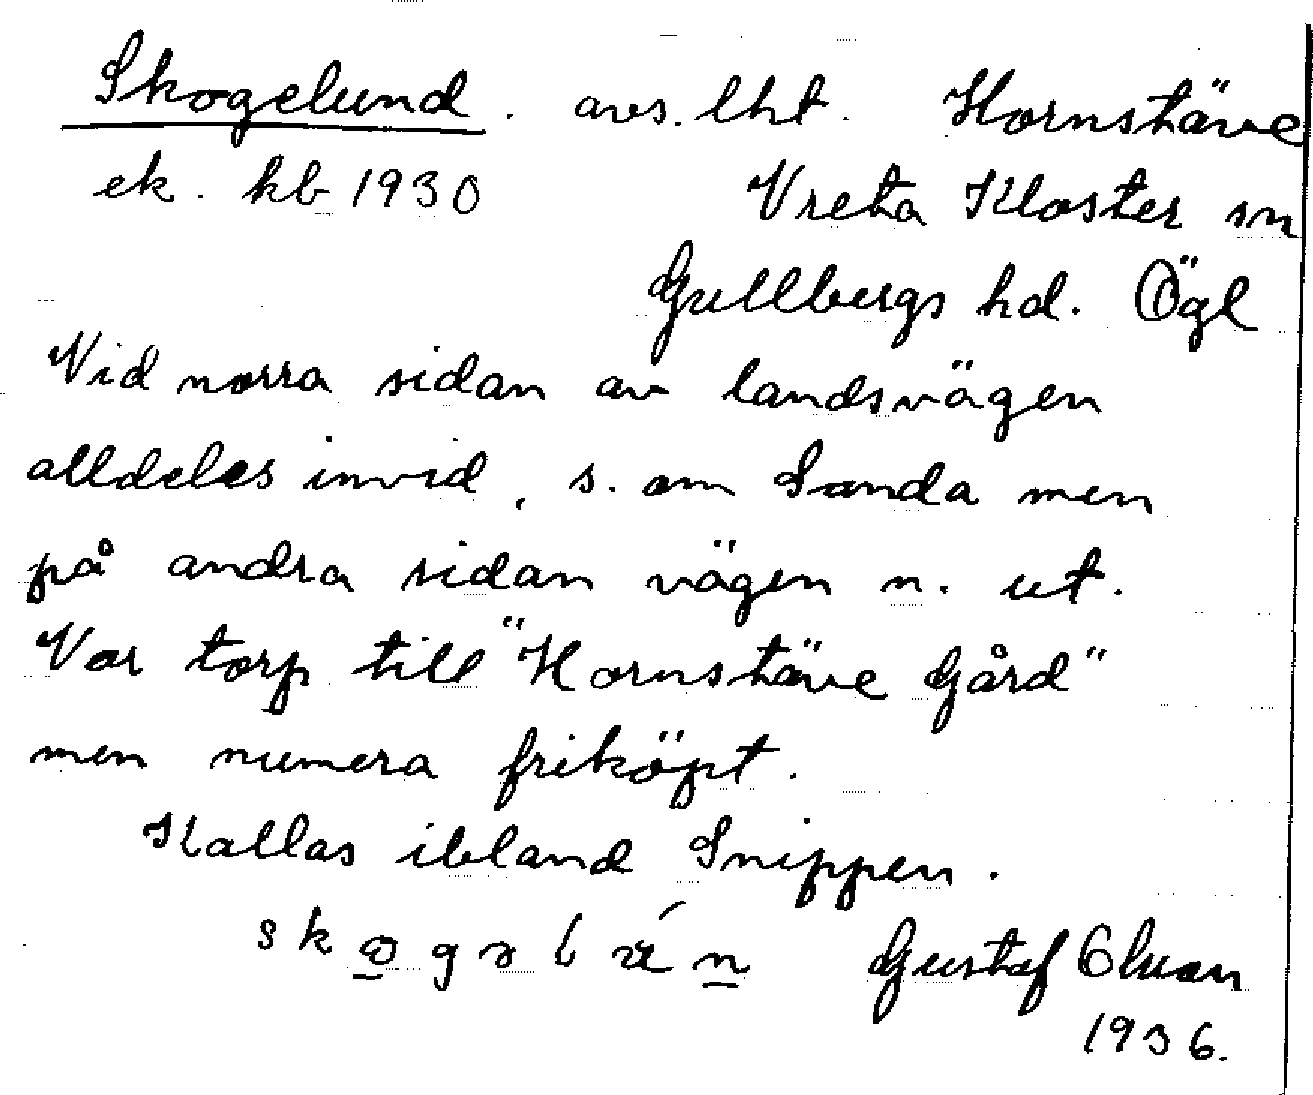 Skogelund. avs. lht. Hornstäve
ek. kb 1930 Vreta Kloster sn
Gullbergs hd. Ögl
Vid norra sidan av landsvägen
alldeles invid, s. om Sanda men
på andra sidan vägen n. ut.
Var torp till "Hornstäve Gård"
men numera friköpt.
Kallas ibland Snippen.
Gustaf
1936.